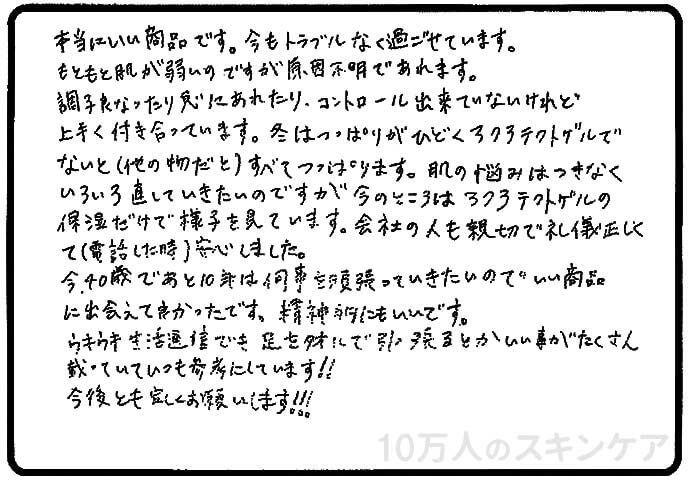 本当にいい商品です。今もトラブルなく過ごせています。
もともと肌が弱いのですが原因不明であれます。
調子良なったり急にあれたり、コントロール出来ていないけれど
上手く付き合っています。冬はつっぱりがひどくろクろテクトゲルで
ないと(他の物だと)すべてつっぱります。肌の悩みはつきなく
いろいろ直していきたいのですが今のところはろクろテクトゲルの
保湿だけで様子を見ています。会社の人も親切で礼儀正しく
て(電話した時)安心しました。
今、40歳であと10年は何事も頑張っていきたいので いい商品
に出会えて良かったです。精神的にもいいです。
ウキウキ生活通信でも 足をタオルで引っ張るとかいい事がたくさん
載っていていつも参考にしています!!
今後とも宜しくお願いします!!!
10万人のスキンケア